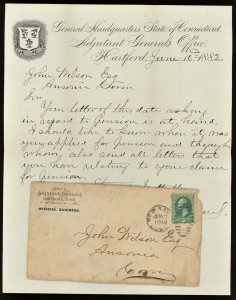 General Headquarters, State of Connecticut,
Adjutant General's Office,
Hartford, June 1882
John Wilson Esq
Ansonia Conn.
Sir
Your letter of this date asking
in regard to pension is at hand.
I should like to know when it was
applied for pension and through
whom, also send all letters that
you have relating to your claim
for pension.
Adjutant-General,
HARTFORD, CONN.
OFFICIAL BUSINESS.
John Wilson Esq
Ansonia
Conn